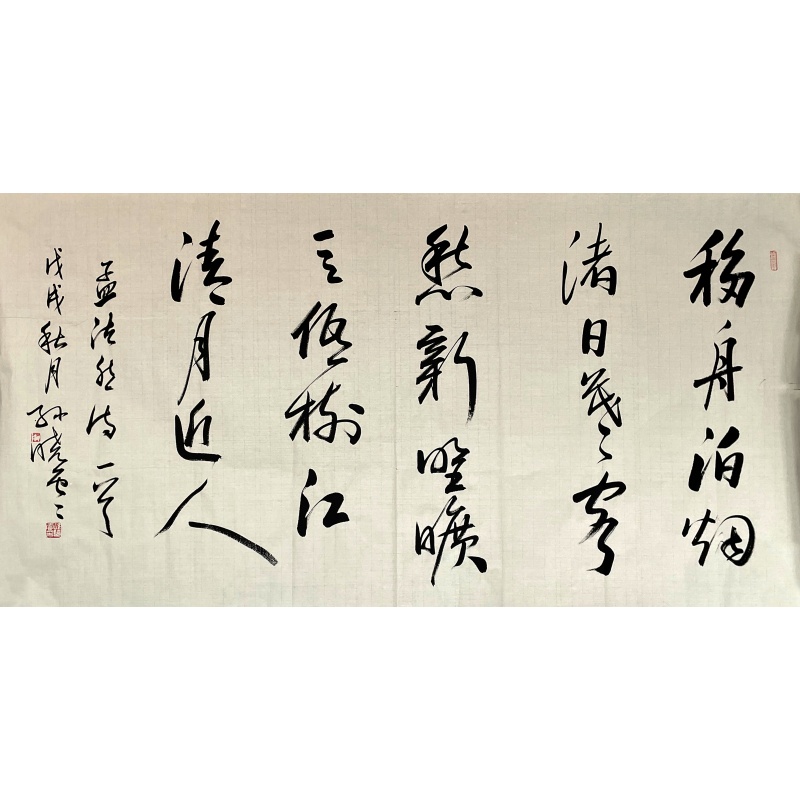 移舟泊烟
渚日暮客
愁新野曠
天低樹江
清月近人
孟浩然诗一首
戊戌秋月孙晓